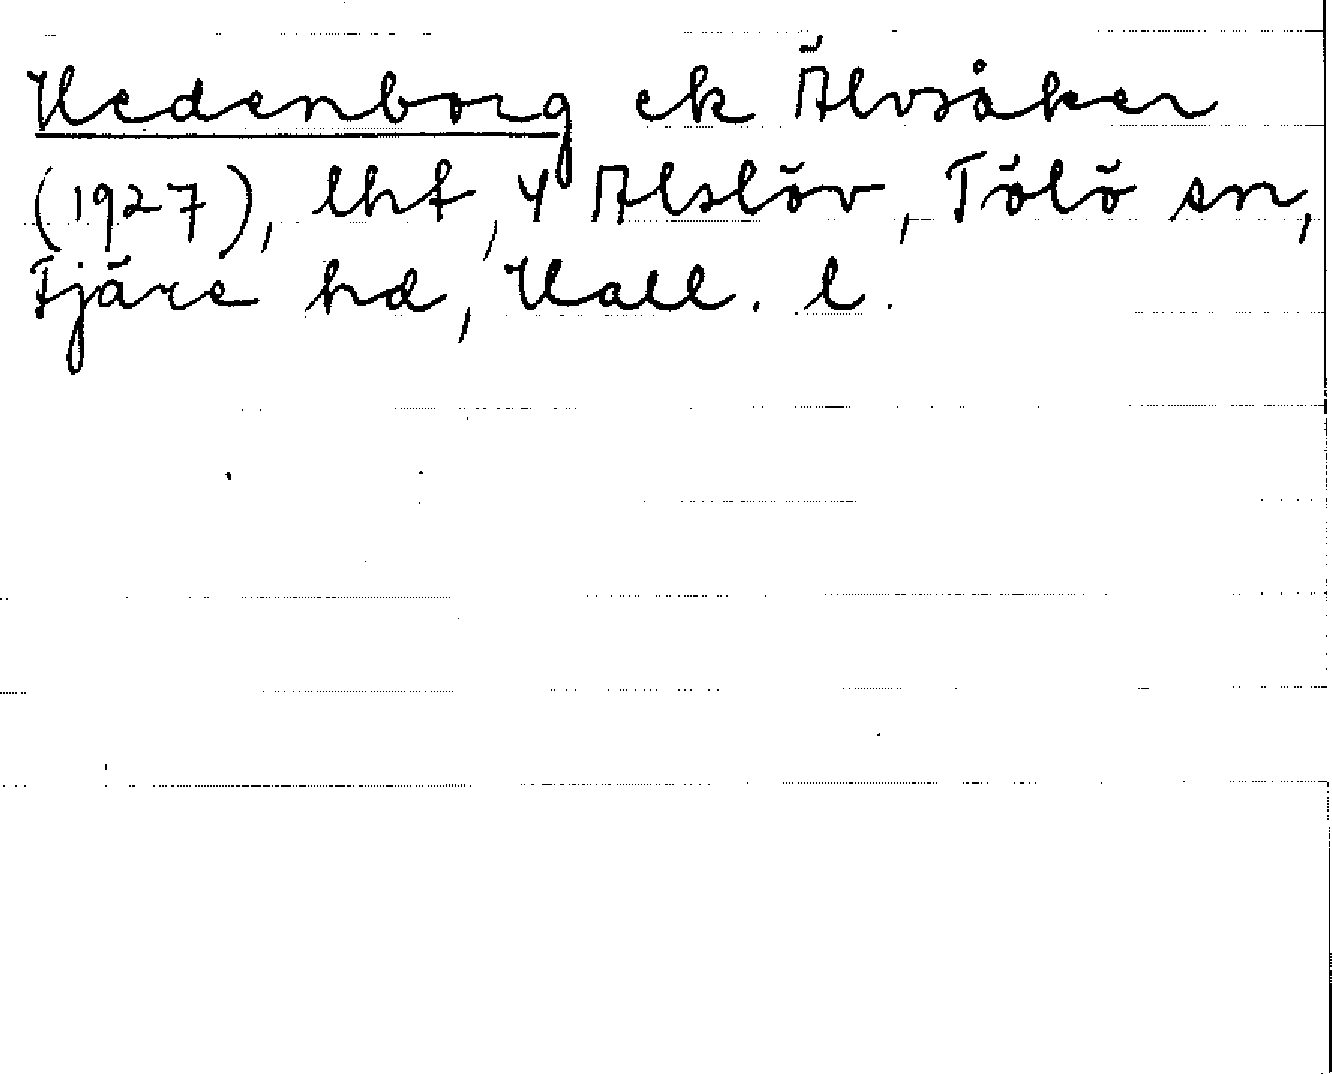 Hedenborg ek Älvsåker
(1927), lht, 4 Alslöv, Tölö sn,
Fjäre hd, Hall. l.